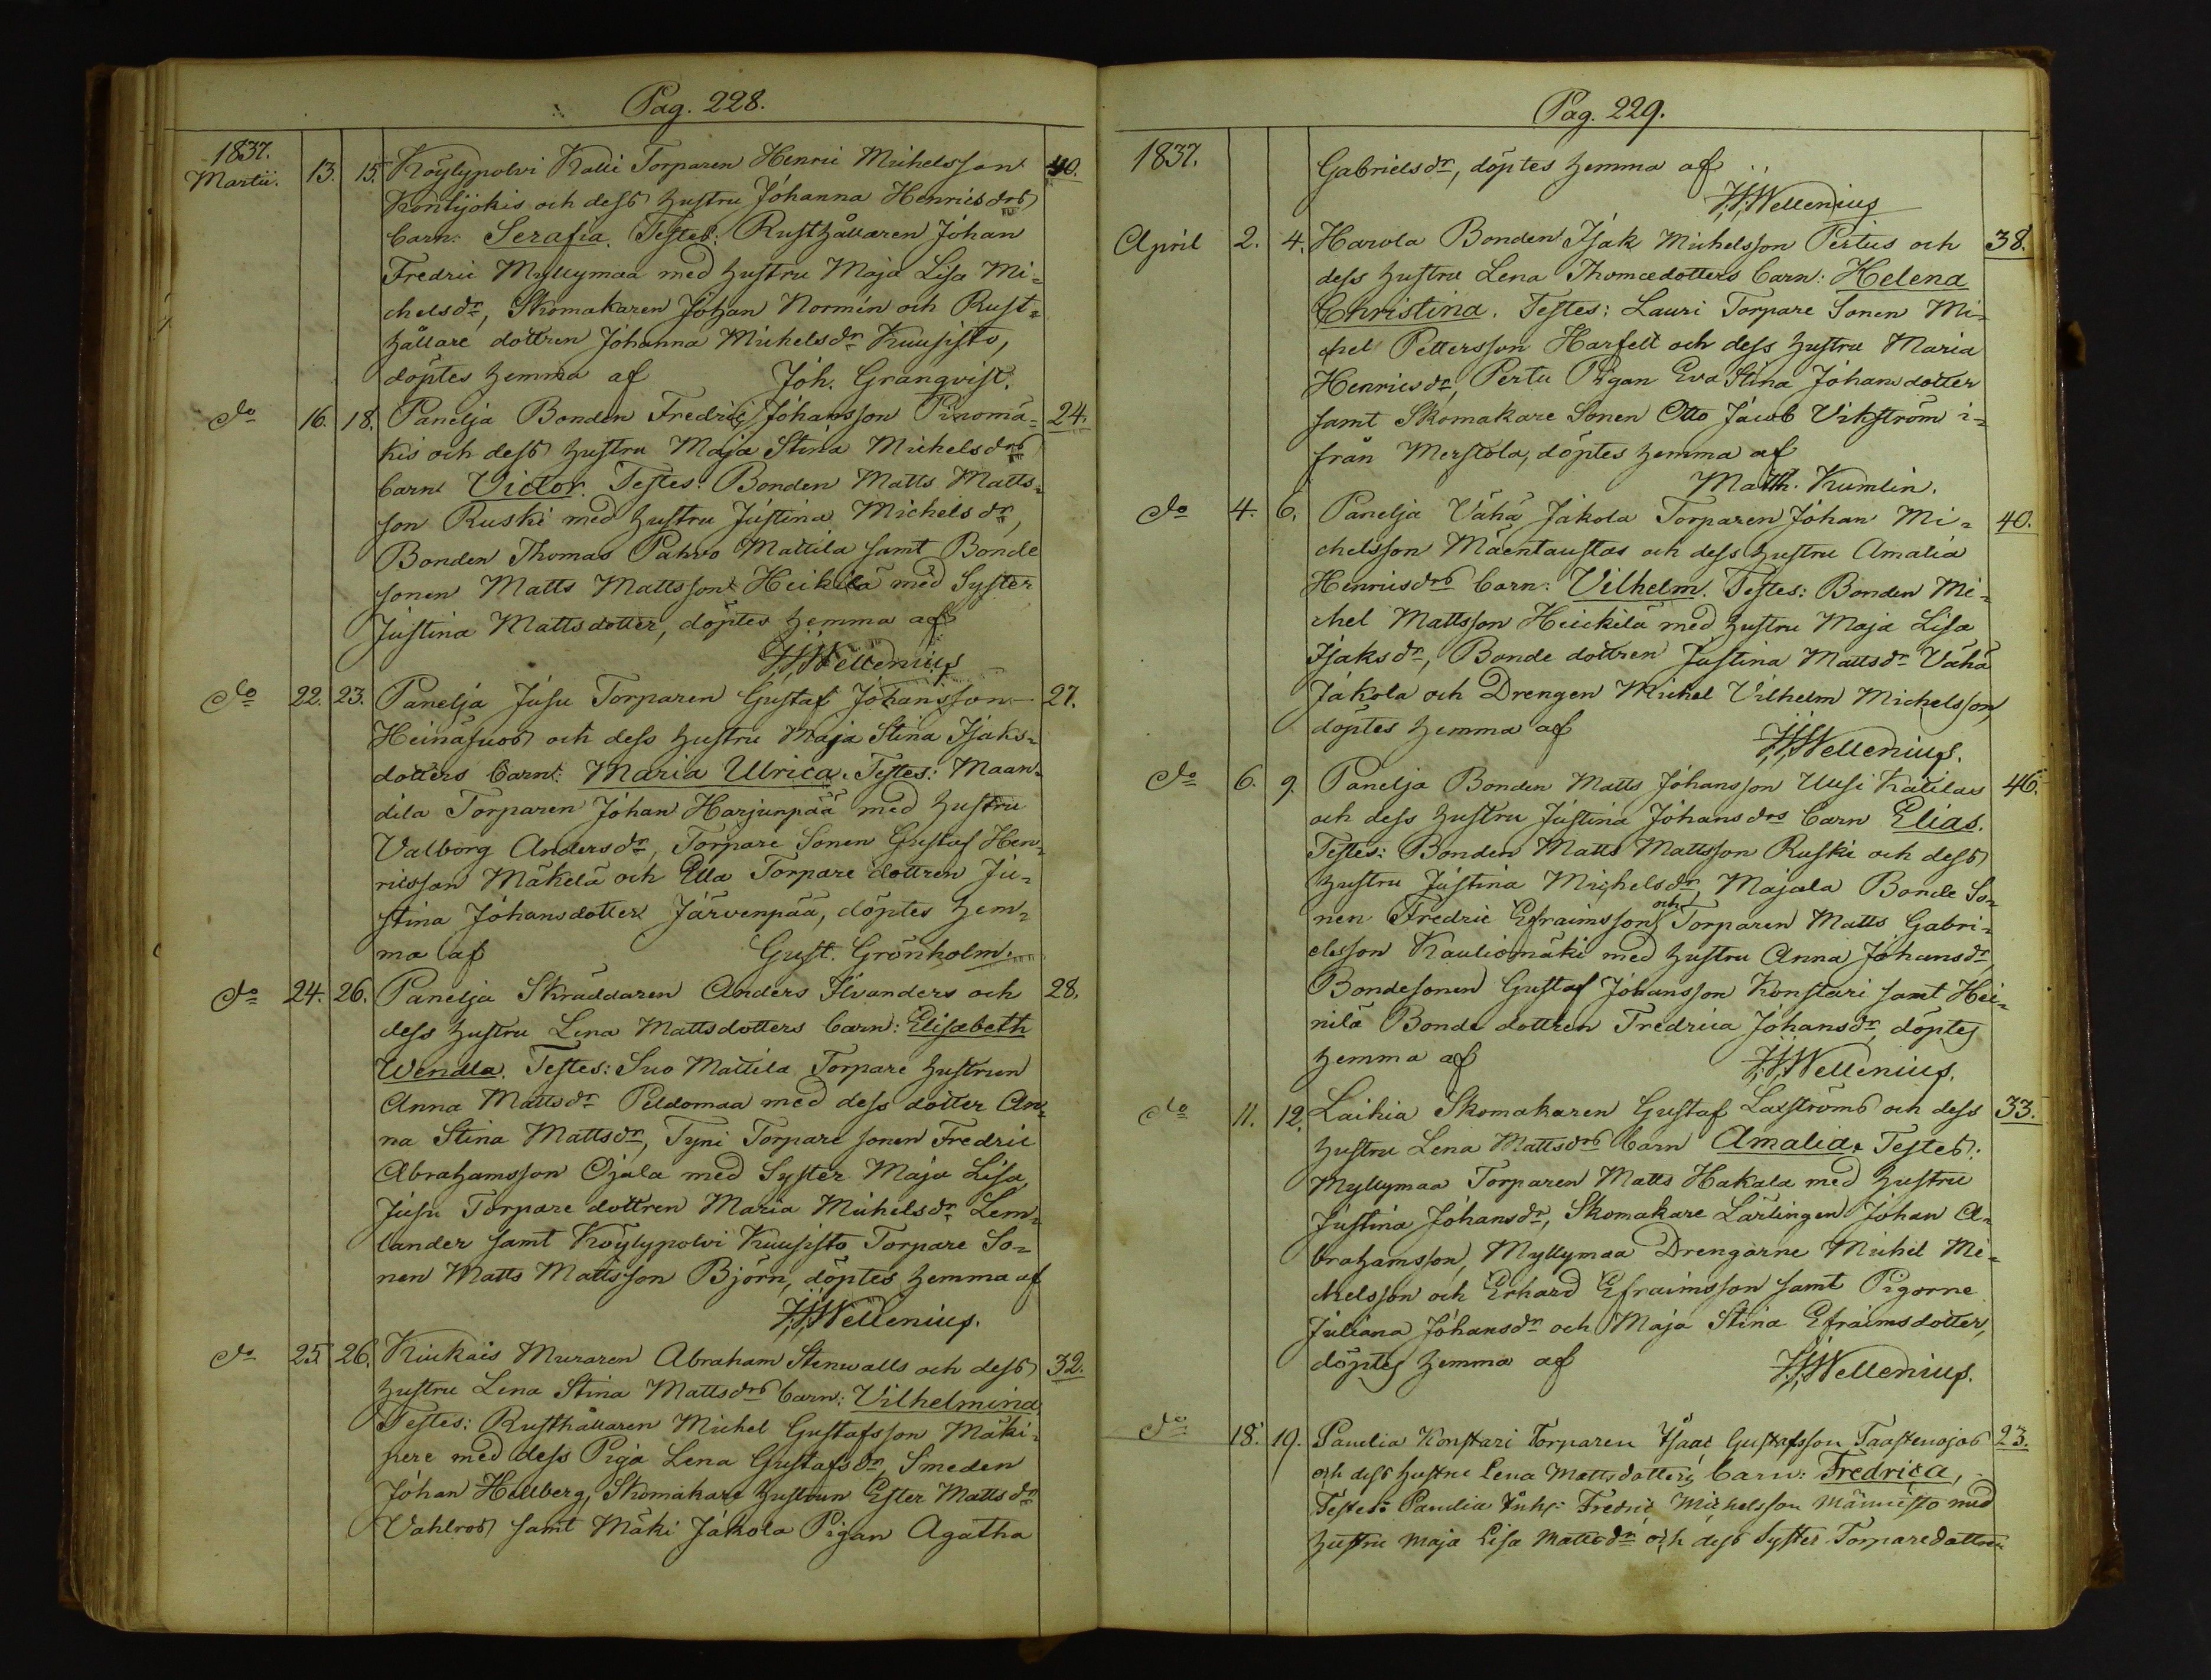 Pag. 228.
1837.
Martii. 13. 15. Köylypolvi Kalli Torparen Henric Michelsson 40.
Kontijokis och dess hustru Johanna Henricsdrs
barn: Serafia. Testes: Rusthållaren Johan
Fredric Myllymaa med hustru Maja Lisa Mi-
chelsdr, Skomakaren Johan Normén och Rust-
hållare dottren Johanna Michelsdr Kuusisto,
döptes hemma af Joh. Granqvist.
do 16. 18. Panelja Bonden Fredric Johansson Pinomä- 24.
kis och dess hustru Maja Stina Michelsdrs
barn Victor. Testes: Bonden Matts Matts-
son Ruski med hustru Justina Michelsdr,
Bonden Thomas Pahvo Mattila samt Bonde
sonen Matts Mattsson Heikilä med Syster
Justina Mattsdotter, döptes hemma af
Wellenius
do 22. 23. Panelja Jusu Torparen Gustaf Johansson 27.
Heinäsuos och dess hustru Maja Stina Isaks-
dotters barn: Maria Ulrica. Testes: Maan-
dila Torparen Johan Harjunpää med hustru
Valborg Andersdr, Torpare Sonen Gustaf Hen-
ricsson Mäkelä och Ella Torpare dottren Ju-
stina Johansdotter Järvenpää, döptes hem-
ma af Gust. Grönholm.
do 24. 26. Panelja Skräddaren Anders Ilvanders och 28.
dess hustru Lena Mattsdotters barn: Elisabeth
Wendla. Testes: Suo Mattila Torpare hustrun
Anna Mattsdr Peldomaa med dess dotter An-
na Stina Mattsdr, Tyni Torpare sonen Fredric
Abrahamsson Ojala med Syster Maja Lisa,
Jusu Torpare dottren Maria Michelsdr Lem-
lander samt Köylypolvi Kuusisto Torpare So-
nen Matts Mattsson Björn, döptes hemma af
Wellenius.
do 25. 26. Kiukais Muraren Abraham Stenwalls och dess 32.
hustru Lena Stina Mattsdrs barn: Vilhelmina
Testes: Rusthållaren Michel Gustafsson Mäki-
pere med dess Piga Lena Gustafsdr, Smeden
Johan Hellberg, Skomakare hustrun Ester Mattsdr
Vahlros samt Mäki Jakola Pigan Agatha
Pag. 229.
1837. Gabrielsdr, döptes hemma af
Wellenius
April 2. 4. Harola Bonden Isak Michelsson Pertus och 38.
dess hustru Lena Thomædotters barn: Helena
Christina. Testes: Lauri Torpare Sonen Mi-
chel Pettersson Harfelt och dess hustru Maria
Henricsdr, Pertu Pigan Eva Stina Johansdotter
samt Skomakare Sonen Otto Jacob Vikström i-
från Merstola, döptes hemma af
Matth. Kumlin.
do 4. 6. Panelja Vähä Jakola Torparen Johan Mi- 40.
chelsson Mäentaustas och dess hustru Amalia
Henricsdrs barn: Vilhelm. Testes: Bonden Mi-
chel Mattsson Heickilä med hustru Maja Lisa
Isaksdr, Bonde dottren Justina Mattsdr Vähä
Jakola och Drengen Michel Vilhelm Michelsson,
döptes hemma af
Wellenius.
do 6. 9. Panelja Bonden Matts Johansson Uusi Katilas 46.
och dess hustru Justina Johansdrs barn Elias.
Testes: Bonden Matts Mattsson Ruski och dess
hustru Justina Michelsdr, Majala Bonde So-
nen Fredric Efraimsson och Torparen Matts Gabri-
elsson Kauliomäki med hustru Anna Johansdr,
Bondesonen Gustaf Johansson Konstari samt Hei-
nilä Bonde dottren Fredrica Johansdr, döptes
hemma af
Wellenius.
do 11. 12. Laihia Skomakaren Gustaf Laxströms och dess 33.
hustru Lena Mattsdrs barn Amalia. Testes:
Myllymaa Torparen Matts Hakala med hustru
Justina Johansdr, Skomakare Lärlingen Johan A-
brahamsson, Myllymaa Drengarne Michel Mi-
chelsson och Erhard Efraimsson samt Pigorne
Juliana Johansdr och Maja Stina Efraimsdotter,
döptes hemma af
Wellenius.
do 18. 19. Panelia Konstari Torparen Isaac Gustafsson Taastenojas 23.
och dess hustru Lena Mattsdotters barn: Fredrica,
Testes: Panelia Inhs: Fredric Michelsson Männistö med
hustru Maja Lisa Mattsdr och dess Syster Torparedottren